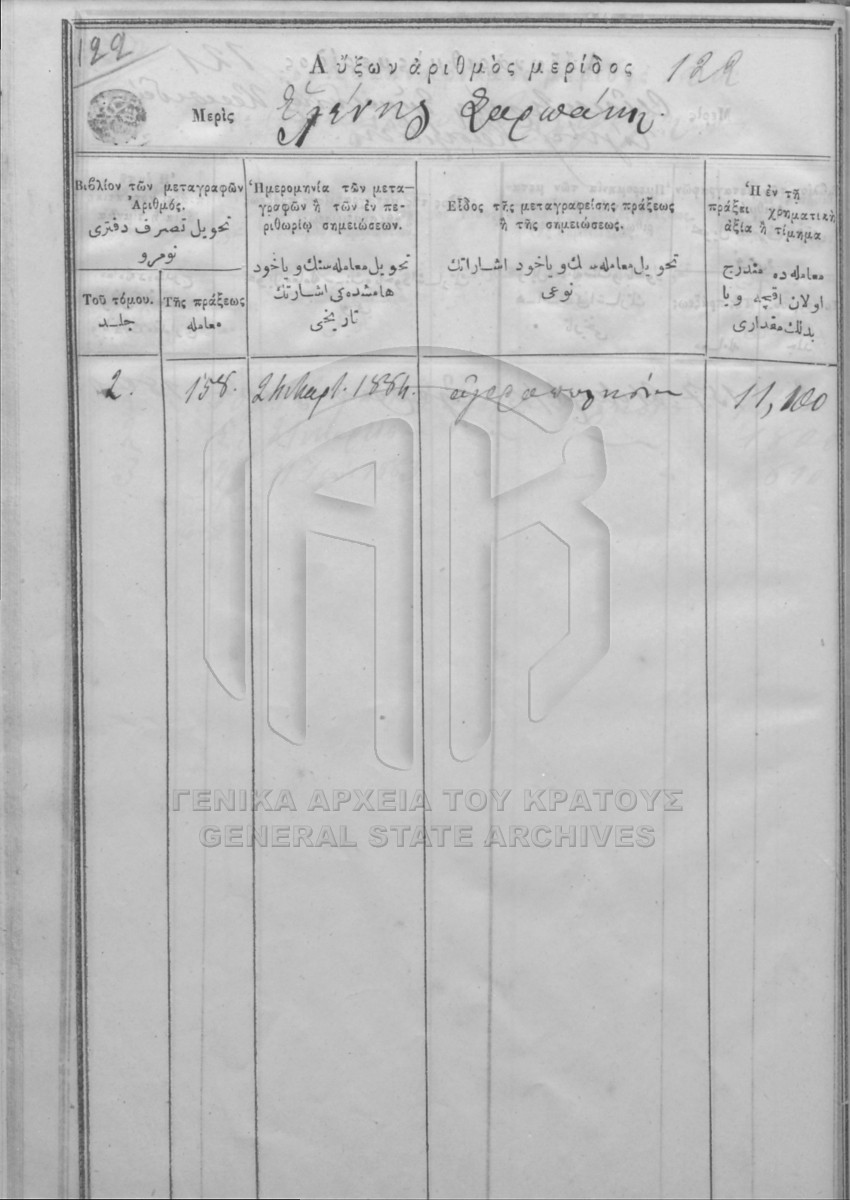 122
Αὔξων ἀριθμὸς μερίδος 122
Μερὶς Ἑλένης Σαρπάκη.
Βιβλίον τῶν μεταγραφῶν
Ἀριθμός.
تحويل تصرف دفترى
نومرو
Τοῦ τόμου.
جلد
Τῆς πράξεως
معامله
Ἡμερομηνία τῶν μετα-
γραφῶν ἢ τῶν ἐν πε-
ριθωρίῳ σημειώσεων.
تحويل معامله سنك و ياخود
هامشده كى اشارتك
تاريخى
Εἶδος τῆς μεταγραφείσης πράξεως
ἢ τῆς σημειώσεως.
تحويل معامله سنك و ياخود اشاراتك
نوعى
Ἡ ἐν τῇ
πράξει χρηματικὴ
ἀξία ἢ τίμημα
معامله ده مندرج
اولان اقچه و يا
بدلك مقدارى
2. 158. 24 Μαρτ. 1884. 11,100
ΓΕΝΙΚΑ ΑΡΧΕΙΑ ΤΟΥ ΚΡΑΤΟΥΣ
GENERAL STATE ARCHIVES